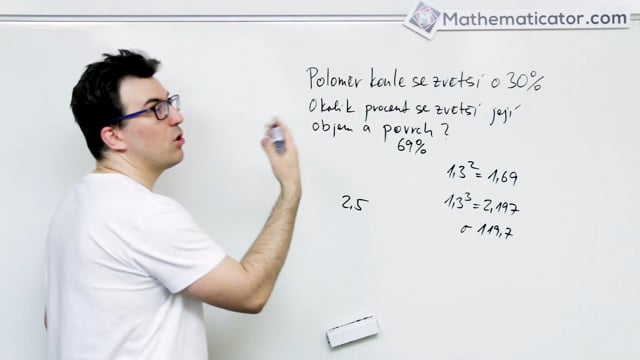 Mathematicator.com
Poloměr koule se zvětší o 30%
O kolik procent se zvětší její
objem a povrch?
69%
1,3² = 1,69
2,5
1,3³ = 2,197
o 119,7